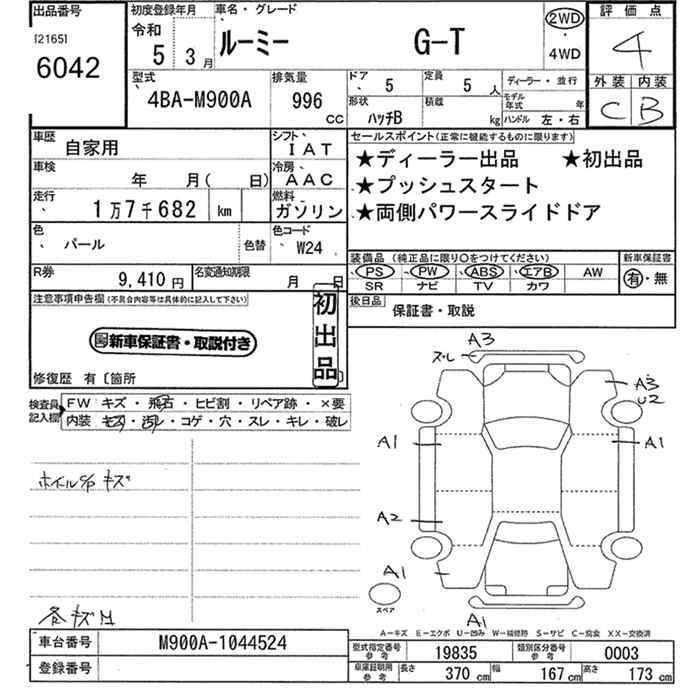 出品番号
[2165]
6042
初度登録年月
令和
5 3月
車名・グレード
ルーミー G-T
2WD
・
4WD
評価点
4
外装 内装
C B
型式
4BA-M900A
排気量
996
CC
ドア 5
定員 5 人
形状 ハッチB
積載 kg
ディーラー・並行
モデル年式 年
ハンドル 左・右
車歴 自家用
シフト IAT
車検 年 月( 日)
冷房 AAC
走行 1万7千682 km
燃料 ガソリン
色 パール 色替
色コード W24
R券 9,410円
名変通知期限 月 日
セールスポイント(正常に機能するものに限ります)
★ディーラー出品 ★初出品
★プッシュスタート
★両側パワースライドドア
装備品 (純正品に限り〇をつけてください)
新車保証書
PS PW ABS エアB AW
SR ナビ TV カワ
有・無
後日品 保証書・取説
注意事項申告欄(不具合内容等は具体的に記入して下さい)
初出品
新車保証書・取説付き
修復歴 有〔箇所
検査員記入欄
FW キズ・飛石・ヒビ割・リペア跡・×要
内装 キズ・汚レ・コゲ・穴・スレ・キレ・破レ
ホイルC/P キズ
各キズ
A3
ズレ
A3
U2
A1
A1
A2
A1
A1
スペア
A-キズ E-エクボ U-凹み W-補修跡 S-サビ C-腐食 XX-交換済
車台番号 M900A-1044524
登録番号
型式指定番号参考 19835
類別区分番号参考 0003
車庫証明用参考 長さ 370 cm 幅 167 cm 高さ 173 cm